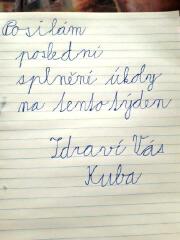 Posílám
poslední
splněné úkoly
na tento týden
Zdraví Vás
Kuba